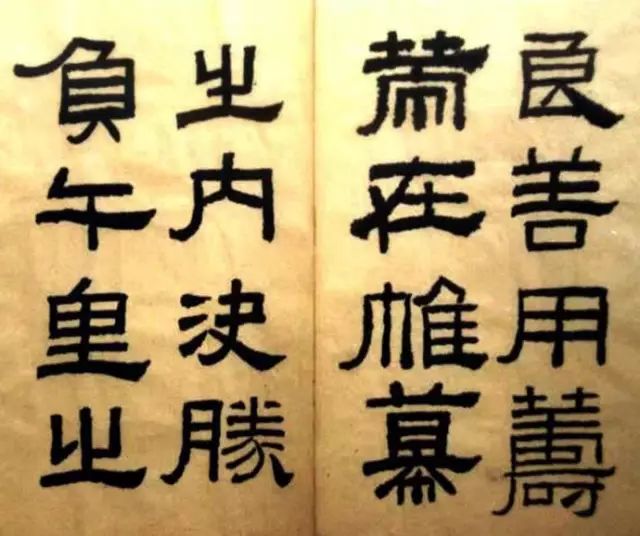 良善用籌
策在帷幕
之内決勝
負千里之